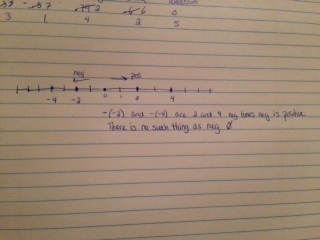 3 1 4 2 5
neg pos
-4 -2 0 2 4
-(-2) and -(-4) are 2 and 4 neg times neg is positive
There is no such thing as neg 0